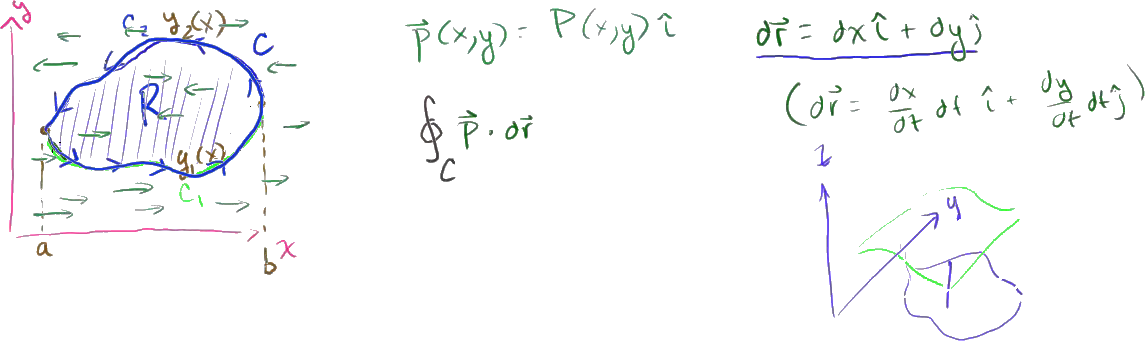 y
C₂ y₂(x)
C
R
y₁(x)
C₁
a
b
x
P⃗(x,y) = P(x,y) î
∮_C P⃗ · dr⃗
dr⃗ = dx î + dy ĵ
(dr⃗ = dx/dt dt î + dy/dt dt ĵ)
z
y